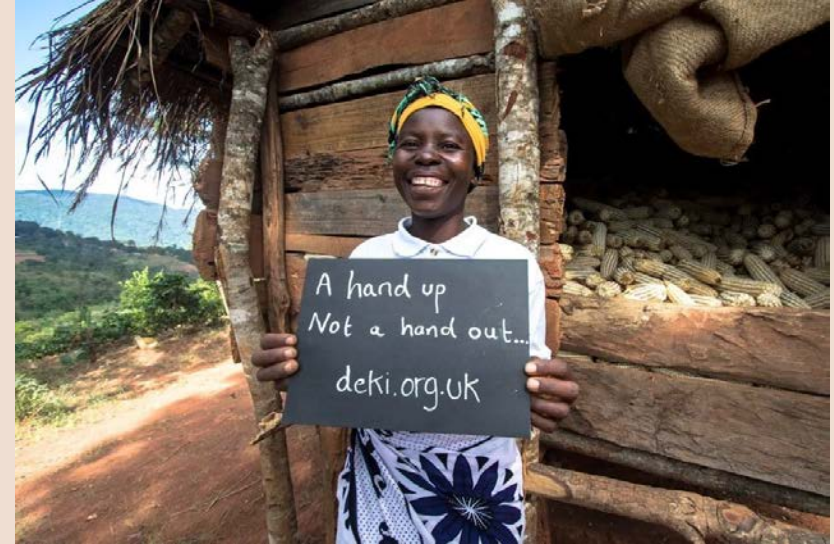 A hand up
Not a hand out...
deki.org.uk